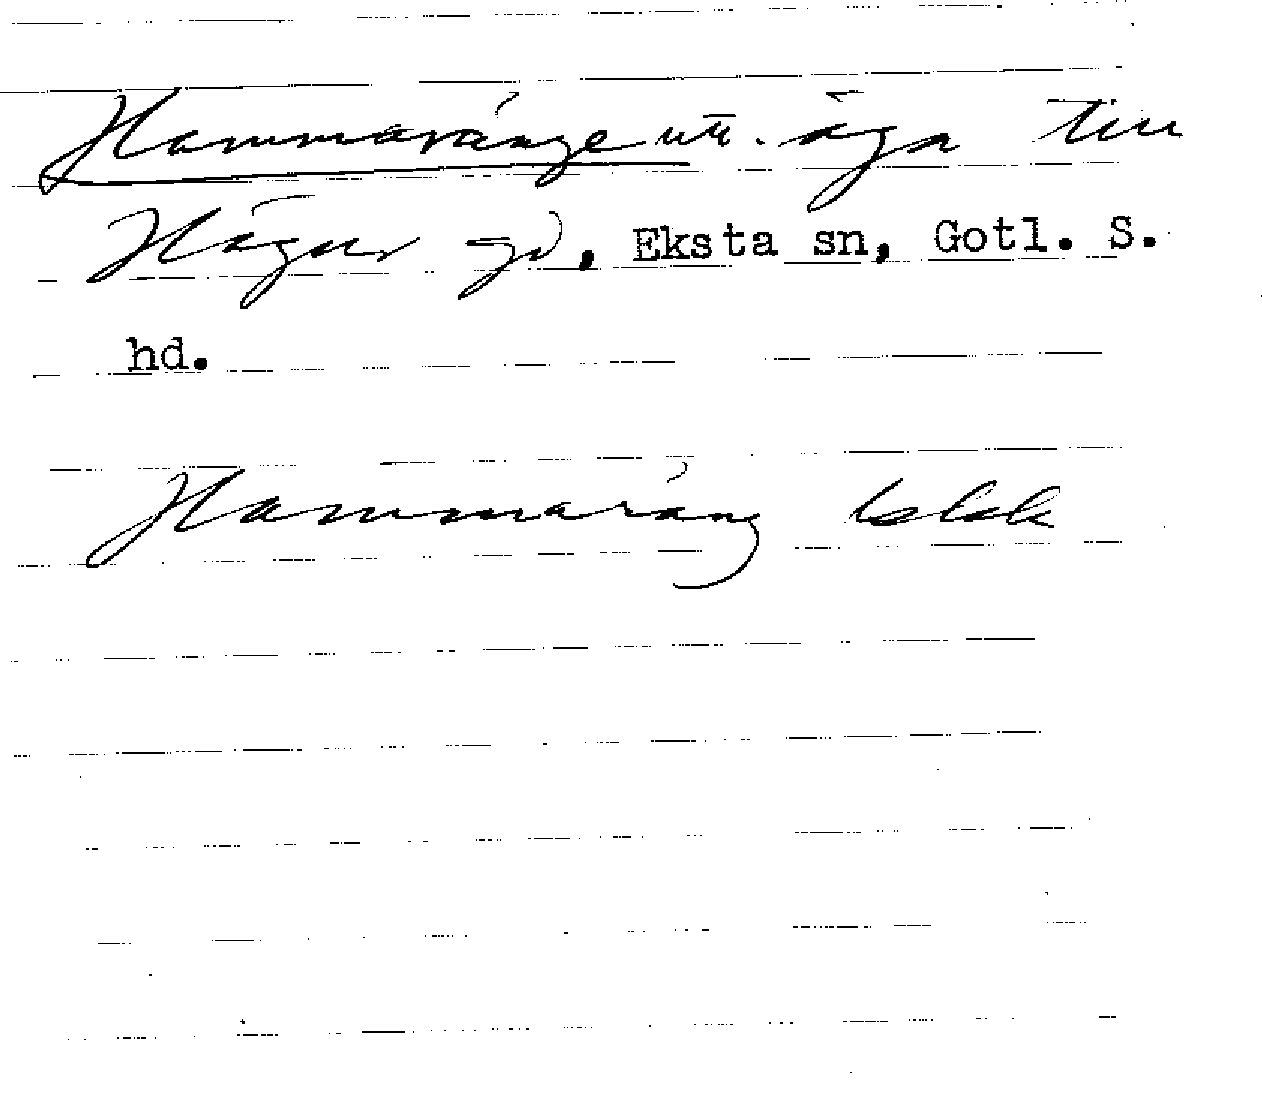 Hammaränge utr. äga till
Hägur gd, Eksta sn, Gotl. S.
hd.
Hammaräng blkk